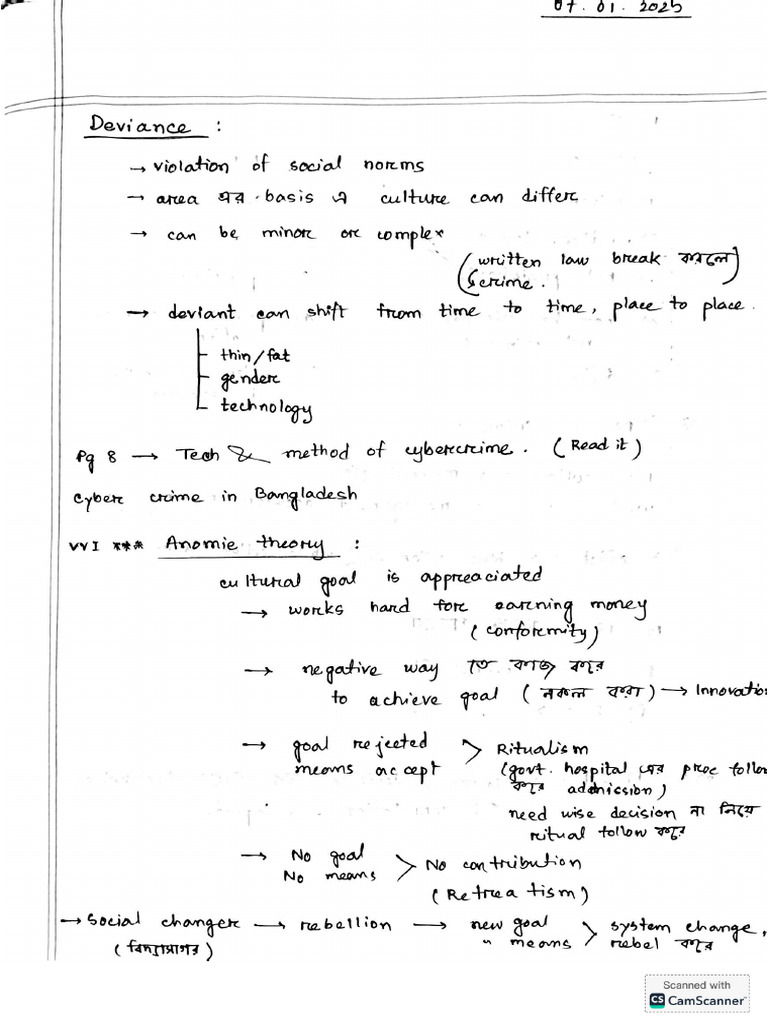 07.01.2025
Deviance :
→ violation of social norms
→ area এর basis এ culture can differ
→ can be minor or complex
(written law break করলে)
↳ crime.
→ deviant can shift from time to time, place to place.
thin/fat
gender
technology
Pg 8 → Tech & method of cybercrime. (Read it)
Cyber crime in Bangladesh
VVI *** Anomie theory :
cultural goal is appreaciated
→ works hard for earning money
(conformity)
→ negative way তে কাজ করে
to achieve goal (নকল করা) → Innovation
→ goal rejected > Ritualism
means accept (govt. hospital এর proc follow
করে admission)
need wise decision না নিয়ে
ritual follow করে
→ No goal > No contribution
No means
(Retreatism)
→ social changer → rebellion → new goal > system change,
(বিদ্যাসাগর) " means rebel করে
Scanned with
CS CamScanner